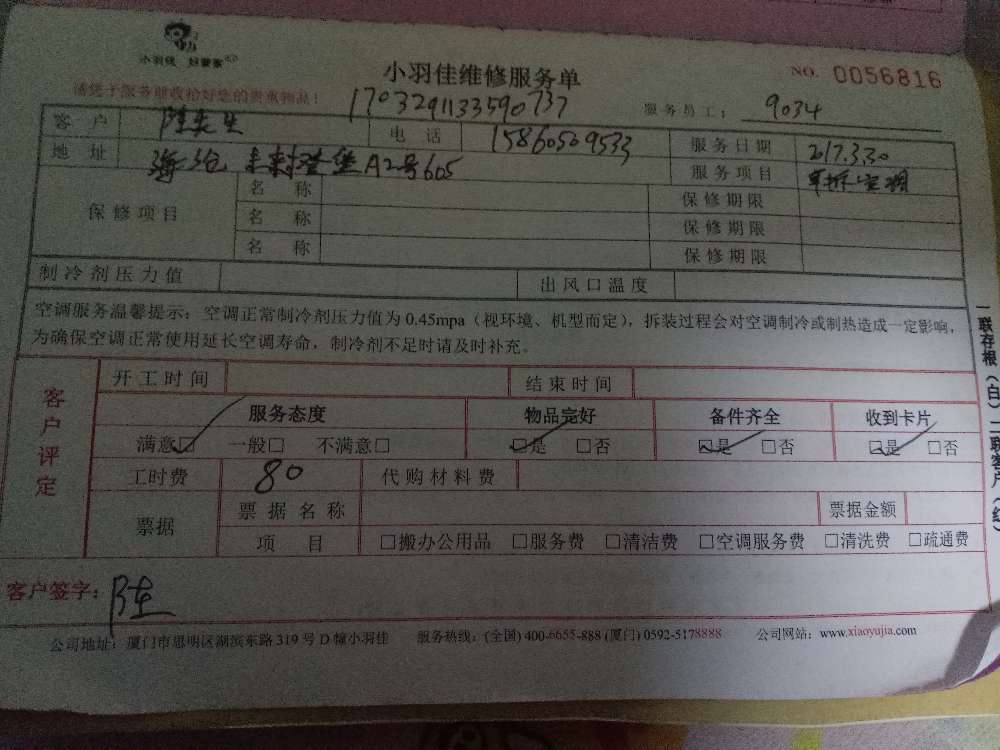 小羽佳 好管家
小羽佳维修服务单
NO. 0056816
请您于服务前收拾好您的贵重物品!
1703291133590737
服务员工: 9034
客户 陈先生 电话 15860509533 服务日期 2017.3.30
地址 海沧 未来海岸 A2号605 服务项目 单拆空调
保修项目 名称 保修期限
名称 保修期限
名称 保修期限
制冷剂压力值 出风口温度
空调服务温馨提示:空调正常制冷剂压力值为0.45mpa(视环境、机型而定),拆装过程会对空调制冷或制热造成一定影响,
为确保空调正常使用延长空调寿命,制冷剂不足时请及时补充。
客户评定
开工时间 结束时间
服务态度 物品完好 备件齐全 收到卡片
满意☑ 一般□ 不满意□ ☑是 □否 ☑是 □否 ☑是 □否
工时费 80 代购材料费
票据 票据名称 票据金额
项目 □搬办公用品 □服务费 □清洁费 □空调服务费 □清洗费 □疏通费
客户签字: 陈
公司地址:厦门市思明区湖滨东路319号D幢小羽佳 服务热线:(全国)400-6655-888(厦门)0592-5178888 公司网站:www.xiaoyujia.com
一联存根(白)二联客户(红)